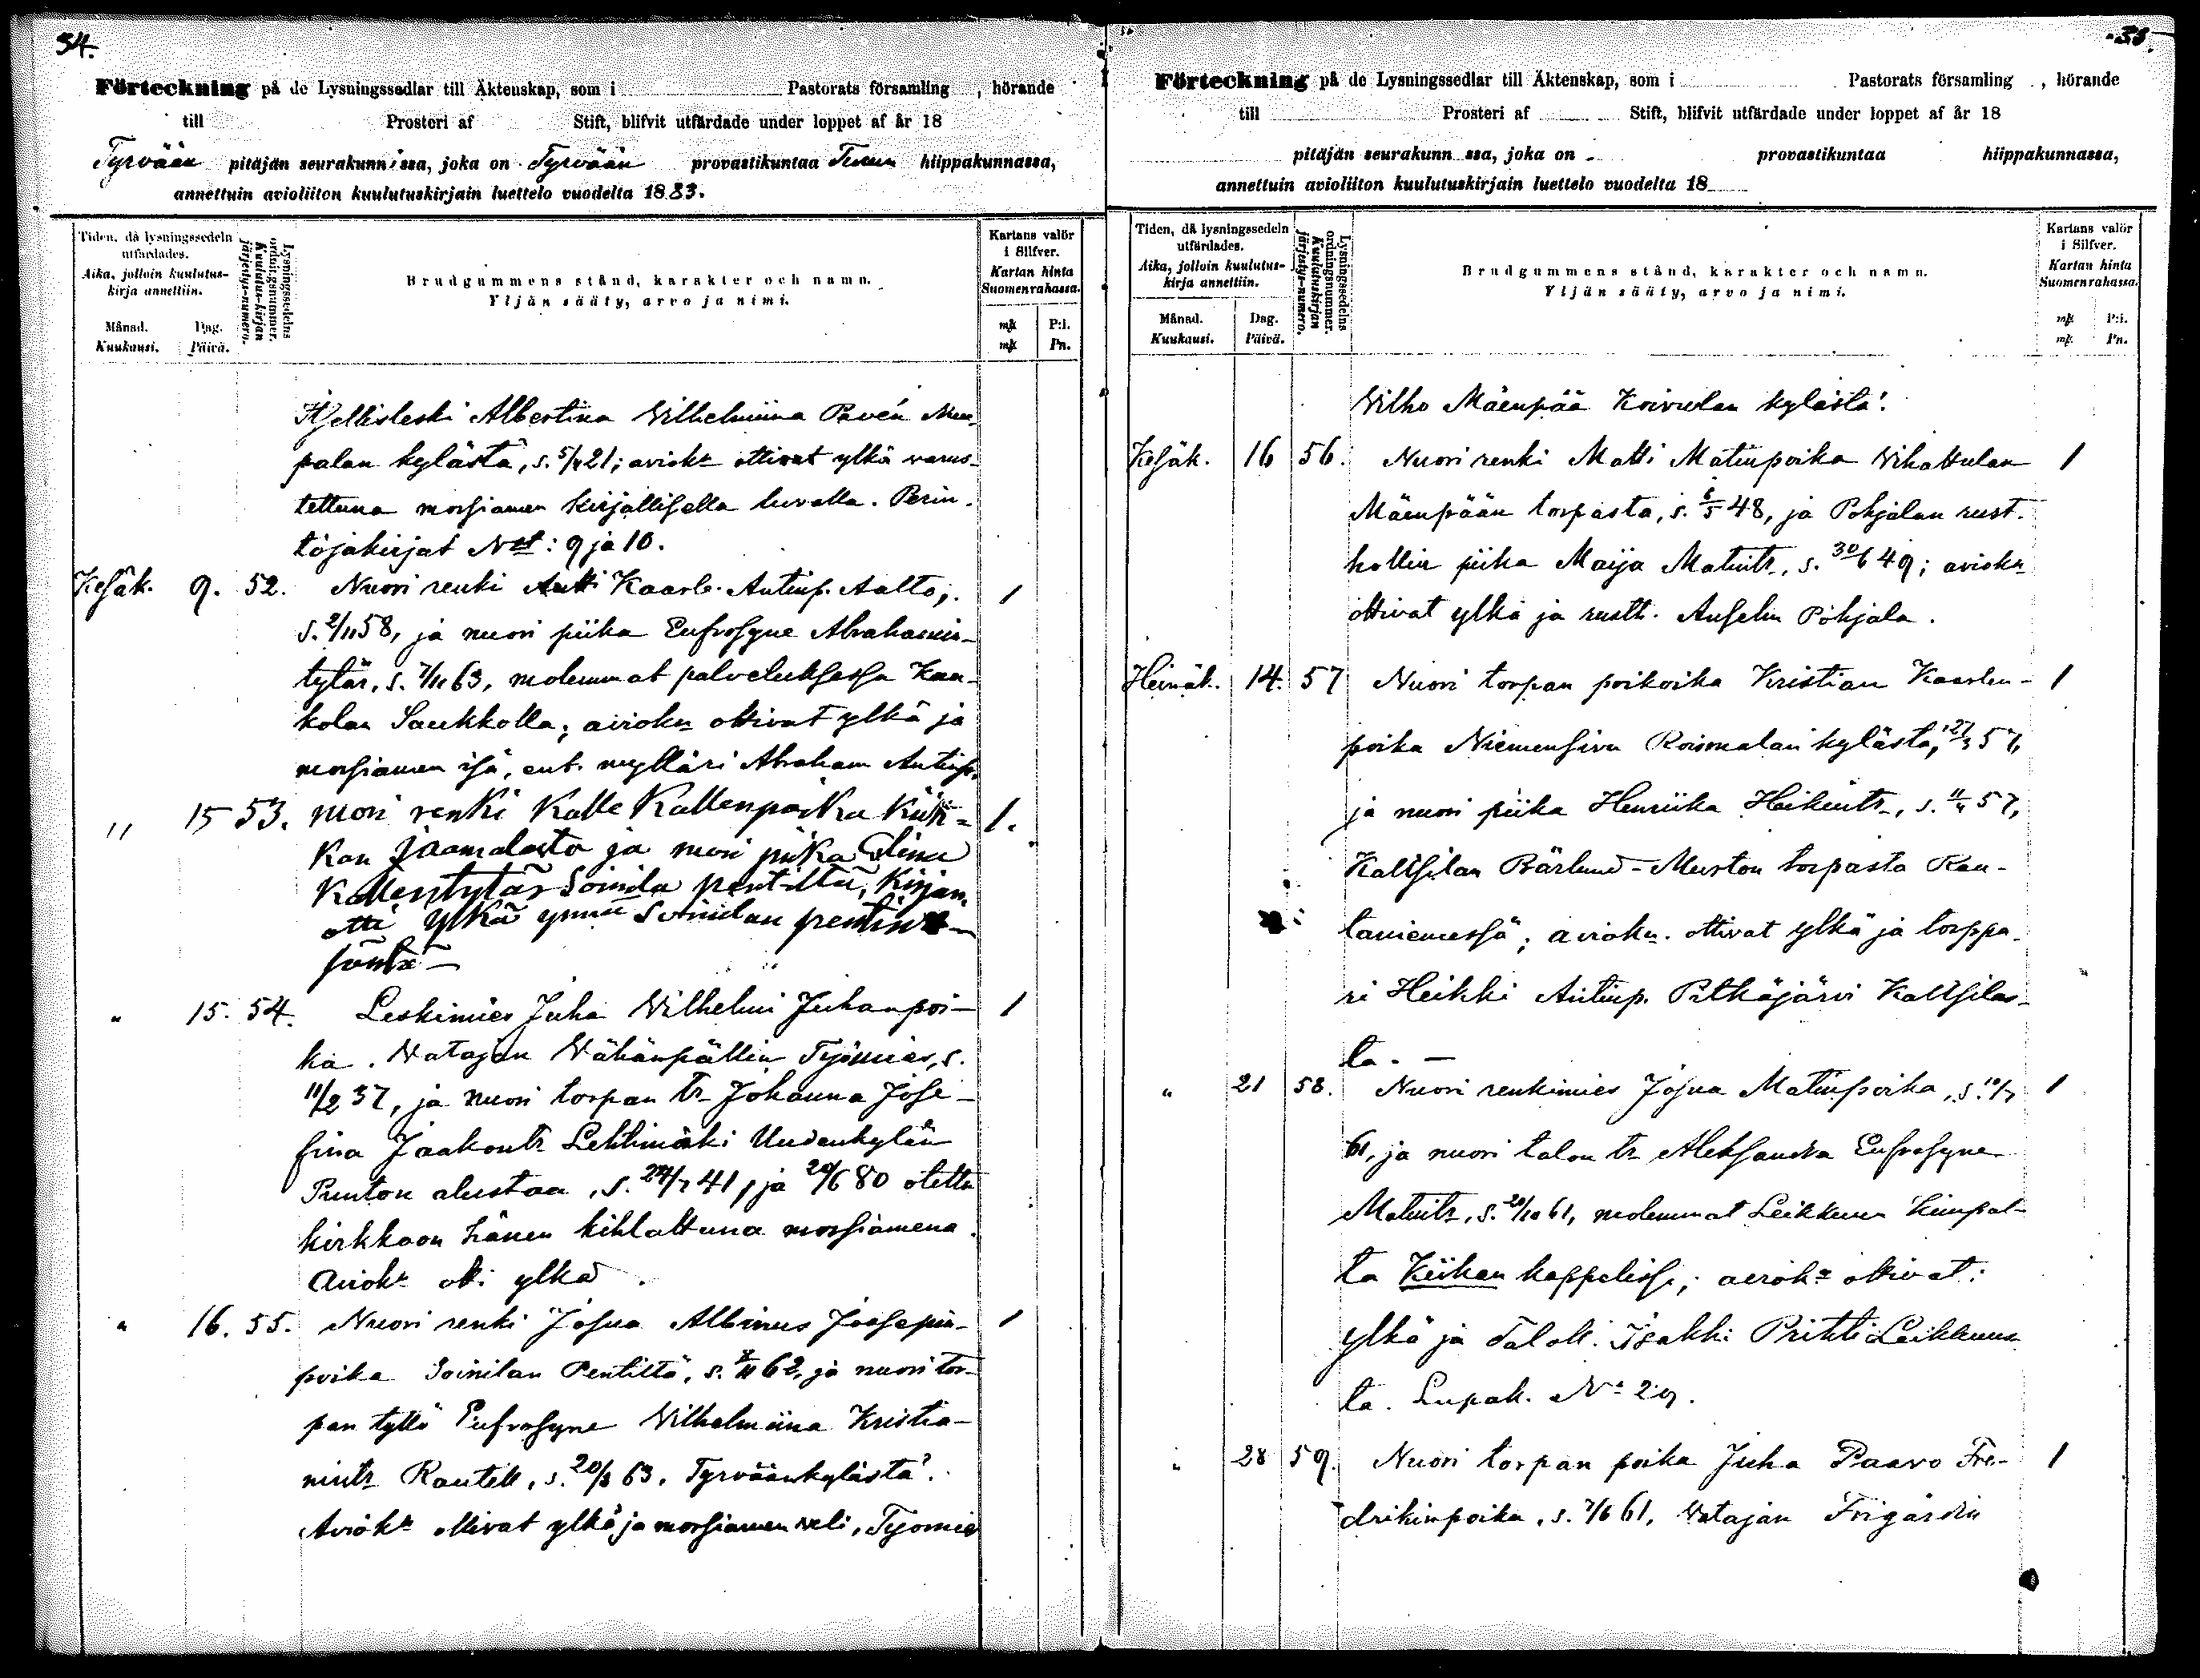 34.
Förteckning på de Lysningssedlar till Äktenskap, som i Pastorats församling , hörande
till Prosteri af Stift, blifvit utfärdade under loppet af år 18
Tyrvään pitäjän seurakunnissa, joka on Tyrvään provastikuntaa Turun hiippakunnassa,
annettuin avioliiton kuulutuskirjain luettelo vuodelta 1883.
Tiden, då lysningssedeln utfärdades.
Aika, jolloin kuulutus-
kirja annettiin.
Månad. Dag.
Kuukausi. Päivä.
Lysningssedelns
ordningsnummer.
Kuulutus-kirjan
järjestys-numero.
Brudgummens stånd, karakter och namn.
Yljän sääty, arvo ja nimi.
Kartans valör
i Silfver.
Kartan hinta
Suomenrahassa.
mk P:i.
mk Pn.
Itsellisleski Albertina Vilhelmiina Pavén
palan kylästä, s. 5/4 21; aviok: ottivat ylkä varus-
tettuna morsiamen kirjallisella luvalla. Perin-
töjakirjat Not: 9 ja 10.
Kesäk. 9. 52. Nuori renki Antti Kaarle Antinp. Aalto, 1
s. 2/11 58, ja nuori piika Eufrosyne Abrahamin-
tytär, s. 7/11 63, molemmat palveluksessa Kau-
kolan Saukkolla; avioku ottivat ylkä ja
morsiamen isä, ent. mylläri Abraham Antinp.
" 15 53. nuori renki Kalle Kallenpoika Kiik= 1.
kan Jaamalasta ja nuori piika Elina
Kallentytär Soinila pentiltä, Kirjan
otti ylkä ynnä Soinilan pentin
" 15. 54. Leskimies Juha Vilhelmi Juhanpoi- 1
ka. Vatajan Vähänpällin Työmies, s.
11/2 37, ja nuori torpan tr Johanna Jose-
fina Jaakontr Lehtimäki Uudenkylän
Punton alustaa, s. 24/7 41, ja 20/6 80 otettu
kirkkoon hänen kihlattuna morsiamena.
Aviok: otti ylkä.
" 16. 55. Nuori renki Josua Albinus Joosepin- 1
poika Soinilan Pentiltä, s. 62, ja nuori tor-
pan tyttö Eufrosyne Vilhelmiina Kristia-
nintr Rautell, s. 20/3 63, Tyrväänkylästä.
Aviok: ottivat ylkä ja morsiamen veli, Työmies
35.
Förteckning på de Lysningssedlar till Äktenskap, som i Pastorats församling , hörande
till Prosteri af Stift, blifvit utfärdade under loppet af år 18
pitäjän seurakunn ssa, joka on provastikuntaa hiippakunnassa,
annettuin avioliiton kuulutuskirjain luettelo vuodelta 18
Tiden, då lysningssedeln
utfärdades.
Aika, jolloin kuulutus-
kirja annettiin.
Månad. Dag.
Kuukausi. Päivä.
Lysningssedelns
ordningsnummer.
Kuulutuskirjan
järjestys-numero.
Brudgummens stånd, karakter och namn.
Yljän sääty, arvo ja nimi.
Kartans valör
i Silfver.
Kartan hinta
Suomenrahassa.
mk P:i.
mk Pn.
Vilho Mäenpää Koivulan kylästä.
Kesäk. 16 56. Nuori renki Matti Matinpoika Vihattulan 1
Mäenpään torpasta, s. 48, ja Pohjalan rust-
hollin piika Maija Matintr, s. 30/6 49; avioku
ottivat ylkä ja rusth. Anselm Pohjala.
Heinäk. 14. 57 Nuori torpan poikoika Kristian Kaarlen- 1
poika Niemensivu Roismalan kylästä, 27/3 57,
ja nuori piika Henriika Heikintr, s. 11/4 57,
Kaltsilan Bärlund-Murton torpasta Rau-
taniemessä; avioku. ottivat ylkä ja torppa-
ri Heikki Antinp. Pitkäjärvi Kaltsilas-
ta. —
" 21 58. Nuori renkimies Josua Matinpoika, s. 10/7 1
61, ja nuori talon tr Aleksandra Eufrosyne
Matintr, s. 20/10 61, molemmat Leikkuun Kimpal-
ta Kiikan kappelissa; aviok: ottivat:
ylkä ja Taloll. Isakki Prihti Leikkuus-
ta. Lupak. No: 29.
" 28 59. Nuori torpan poika Juha Paavo Fre- 1
drikinpoika, s. 7/6 61, Vatajan Frigårdin